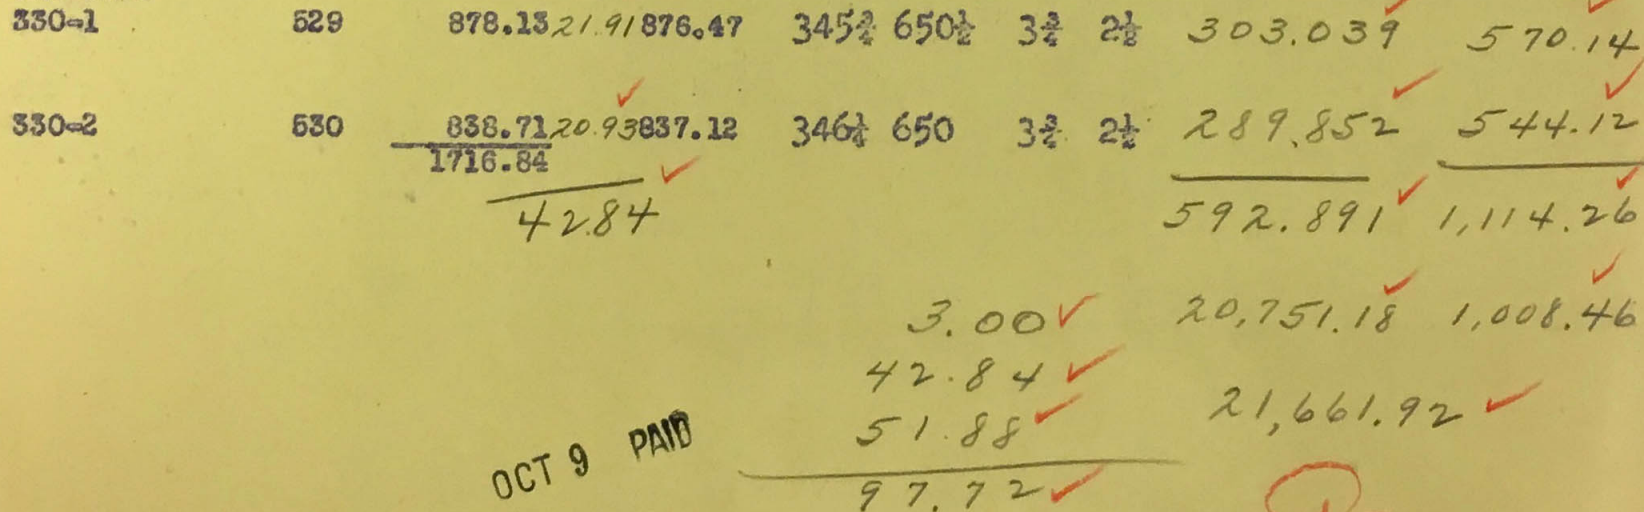 330-1 529 878.13 21.91 876.47 345¾ 650½ 3¾ 2½ 303.039 570.14
330-2 530 838.71 20.93 837.12 346¼ 650 3¾ 2½ 289.852 544.12
1716.84
42.84 592.891 1,114.26
3.00 20,751.18 1,008.46
42.84
51.88 21,661.92
OCT 9 PAID
97.72